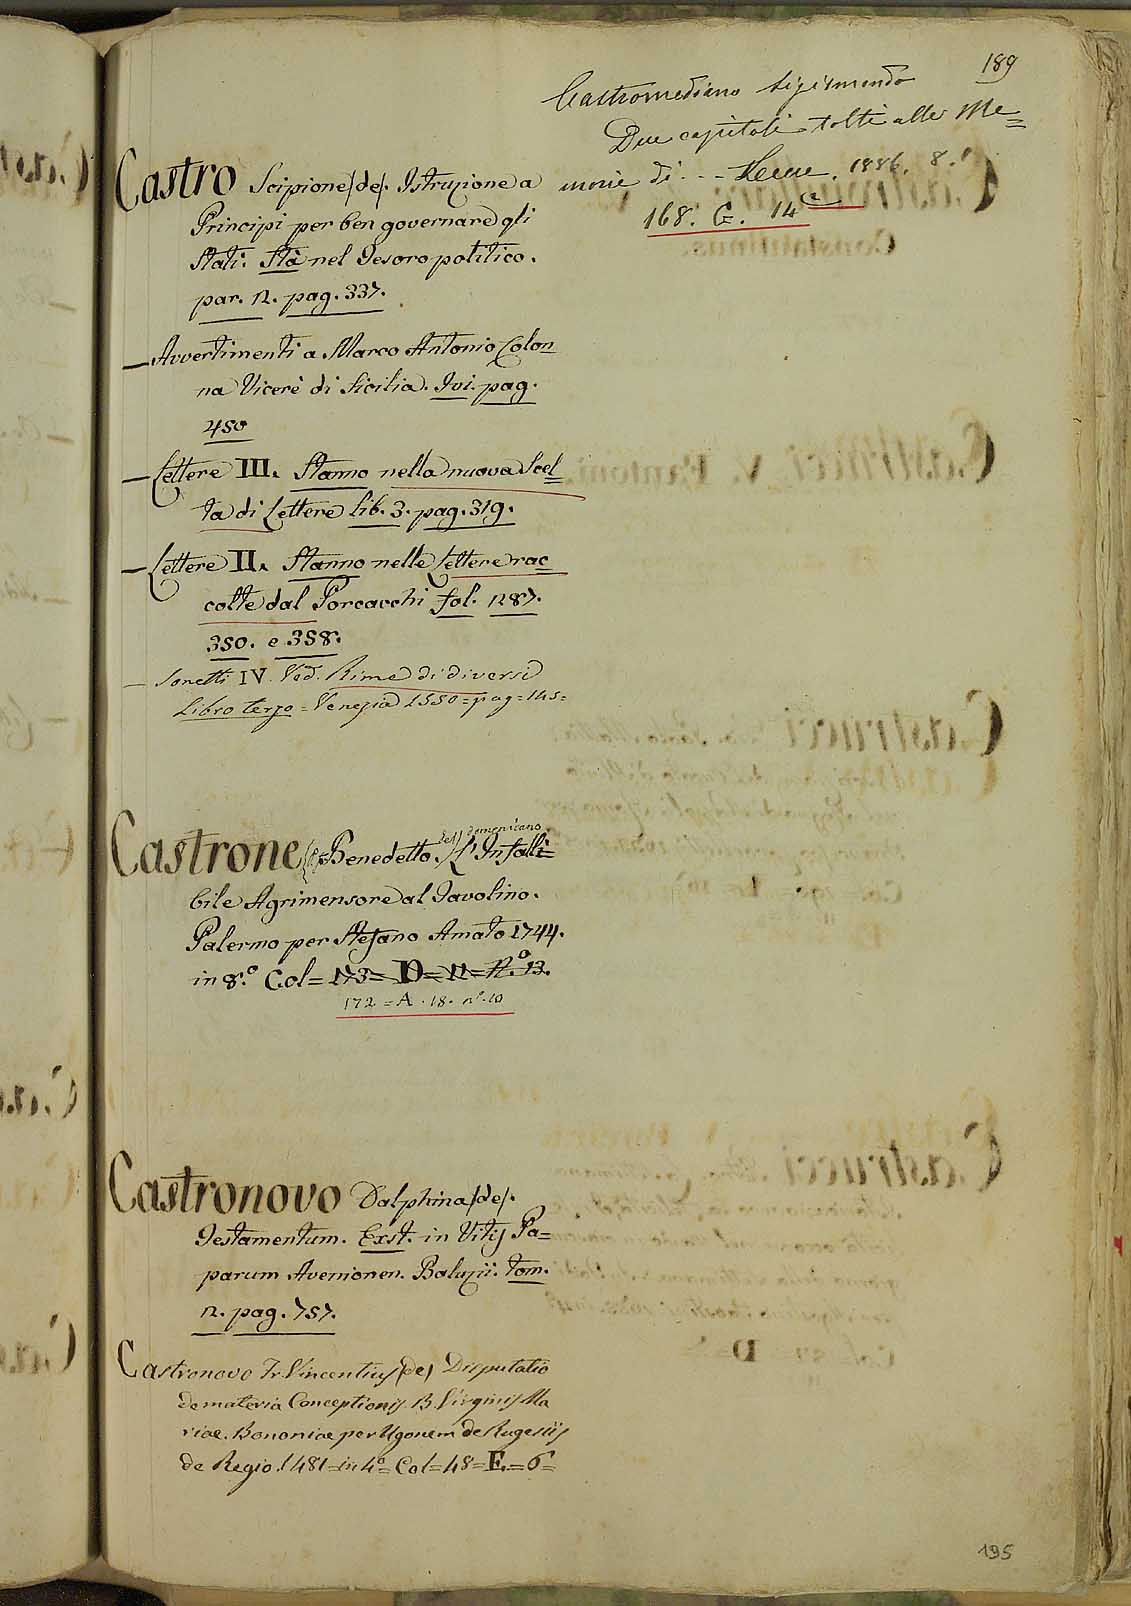 189
Castromediano Sigismondo
Due capitoli tolti alle Me=
morie di - - - Lecce. 1886. 8.°
168. G. 14
Castro Scipione (de). Istruzione a
Principi per ben governare gli
Stati. Stà nel Tesoro politico.
par. 2. pag. 337.
— Avvertimenti a Marco Antonio Colon
na Vicerè di Sicilia. Ivi. pag.
450
— Lettere III. Stanno nella nuova Scel=
ta di Lettere lib. 3. pag. 319.
— Lettere II. Stanno nelle Lettere rac
colte dal Porcacchi fol. 287.
350. e 358.
— Sonetti IV. Ved. Rime di diversi
Libro terzo = Venezia 1550 = pag = 145 =
Castrone Benedetto. domenicano L'Infalli=
bile Agrimensore al Tavolino.
Palermo per Stefano Amato 1744.
in 8.° Col = 173 = D = 11 = N.° 13.
172 = A . 18. n°. 10
Castronovo Dalphina (de).
Testamentum. Exst. in Vitis Pa=
parum Avenionen. Baluzii. tom.
2. pag. 757.
Castronovo Fr. Vincentius (de) Disputatio
de materia Conceptionis B. Virginis Ma
riae. Bononiae per Ugonem de Rugeriis
de Regio 1481 = in 4° = Col = 48 = E. = 6 =
195